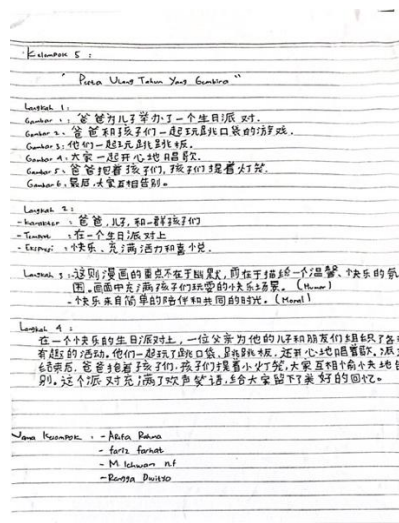 Kelompok 5 :
" Pesta Ulang Tahun Yang Gembira "
Langkah 1 :
Gambar 1 : 爸爸为儿子举办了一个生日派对.
Gambar 2 : 爸爸和孩子们一起玩跳口袋的游戏.
Gambar 3 : 他们一起玩跳跳板.
Gambar 4 : 大家一起开心地唱歌.
Gambar 5 : 爸爸抱着孩子们, 孩子们提着灯笼.
Gambar 6 : 最后, 大家互相告别。
Langkah 2 :
- Karakter : 爸爸, 儿子, 和一群孩子们
- Tempat : 在一个生日派对上
- Ekspresi : 快乐、充满活力和喜悦.
Langkah 3 : - 这则漫画的重点不在于幽默, 而在于描绘一个温馨、快乐的氛
围. 画面中充满孩子们玩耍的快乐场景. (Humor)
- 快乐来自简单的陪伴和共同的时光. (Moral)
Langkah 4 :
在一个快乐的生日派对上, 一位父亲为他的儿子和朋友们组织了各
有趣的活动. 他们一起玩了跳口袋、跳跳板, 还开心地唱着歌. 派
结束后, 爸爸抱着孩子们, 孩子们提着小灯笼, 大家互相愉快地告
别. 这个派对充满了欢声笑语, 给大家留下了美好的回忆.
Nama Kelompok : - Arifa Rahma
- fariz farhat
- M Ichwan n.f
- Rangga